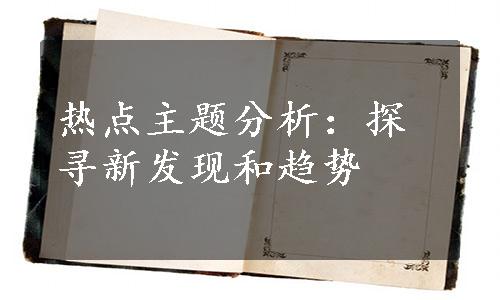 热点主题分析：探
寻新发现和趋势